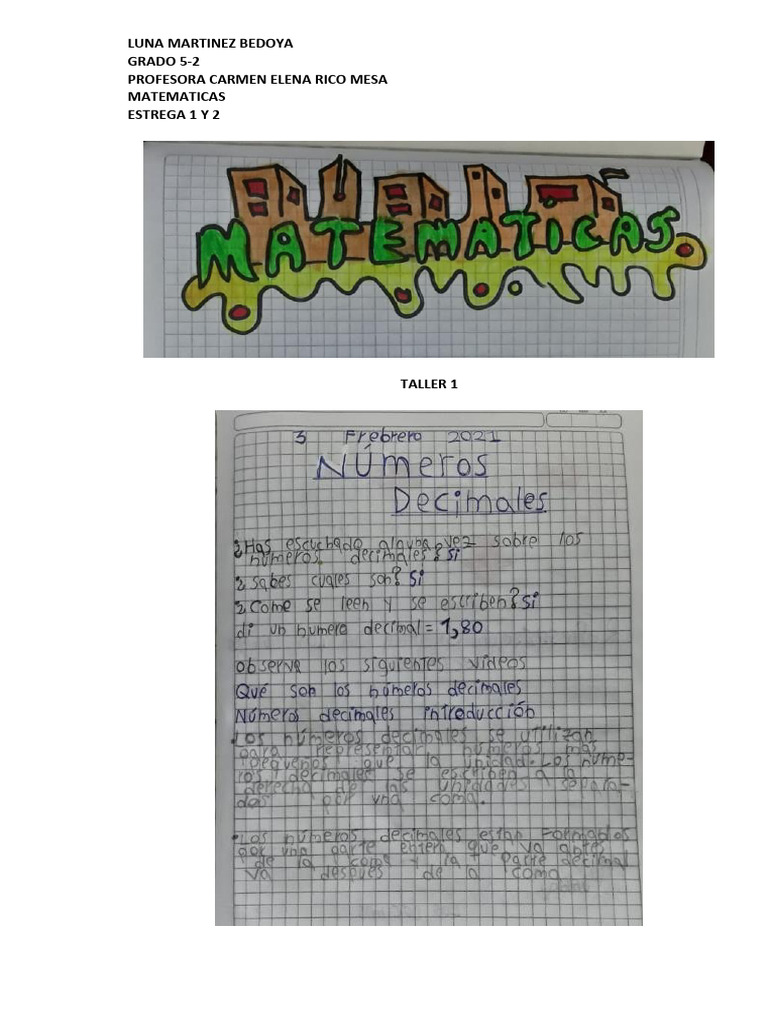 LUNA MARTINEZ BEDOYA
GRADO 5-2
PROFESORA CARMEN ELENA RICO MESA
MATEMATICAS
ESTREGA 1 Y 2
MATEMATICAS
TALLER 1
3 Frebrero 2021
Números
Decimales
¿Has escuchado alguna vez sobre los
números decimales? si
¿sabes cuales son? si
¿Como se leen y se escriben? si
di un numero decimal = 1,80
observa los siguientes videos
Qué son los números decimales
Números decimales introducción
•Los números decimales se utilizan
para representar números mas
pequeños que la unidad. Los núme-
ros decimales se escriben a la
derecha de las unidades separa-
dos por una coma.
•Los números decimales estan formados
por una parte entera que va antes
de la coma y la parte decimal
va despues de la coma